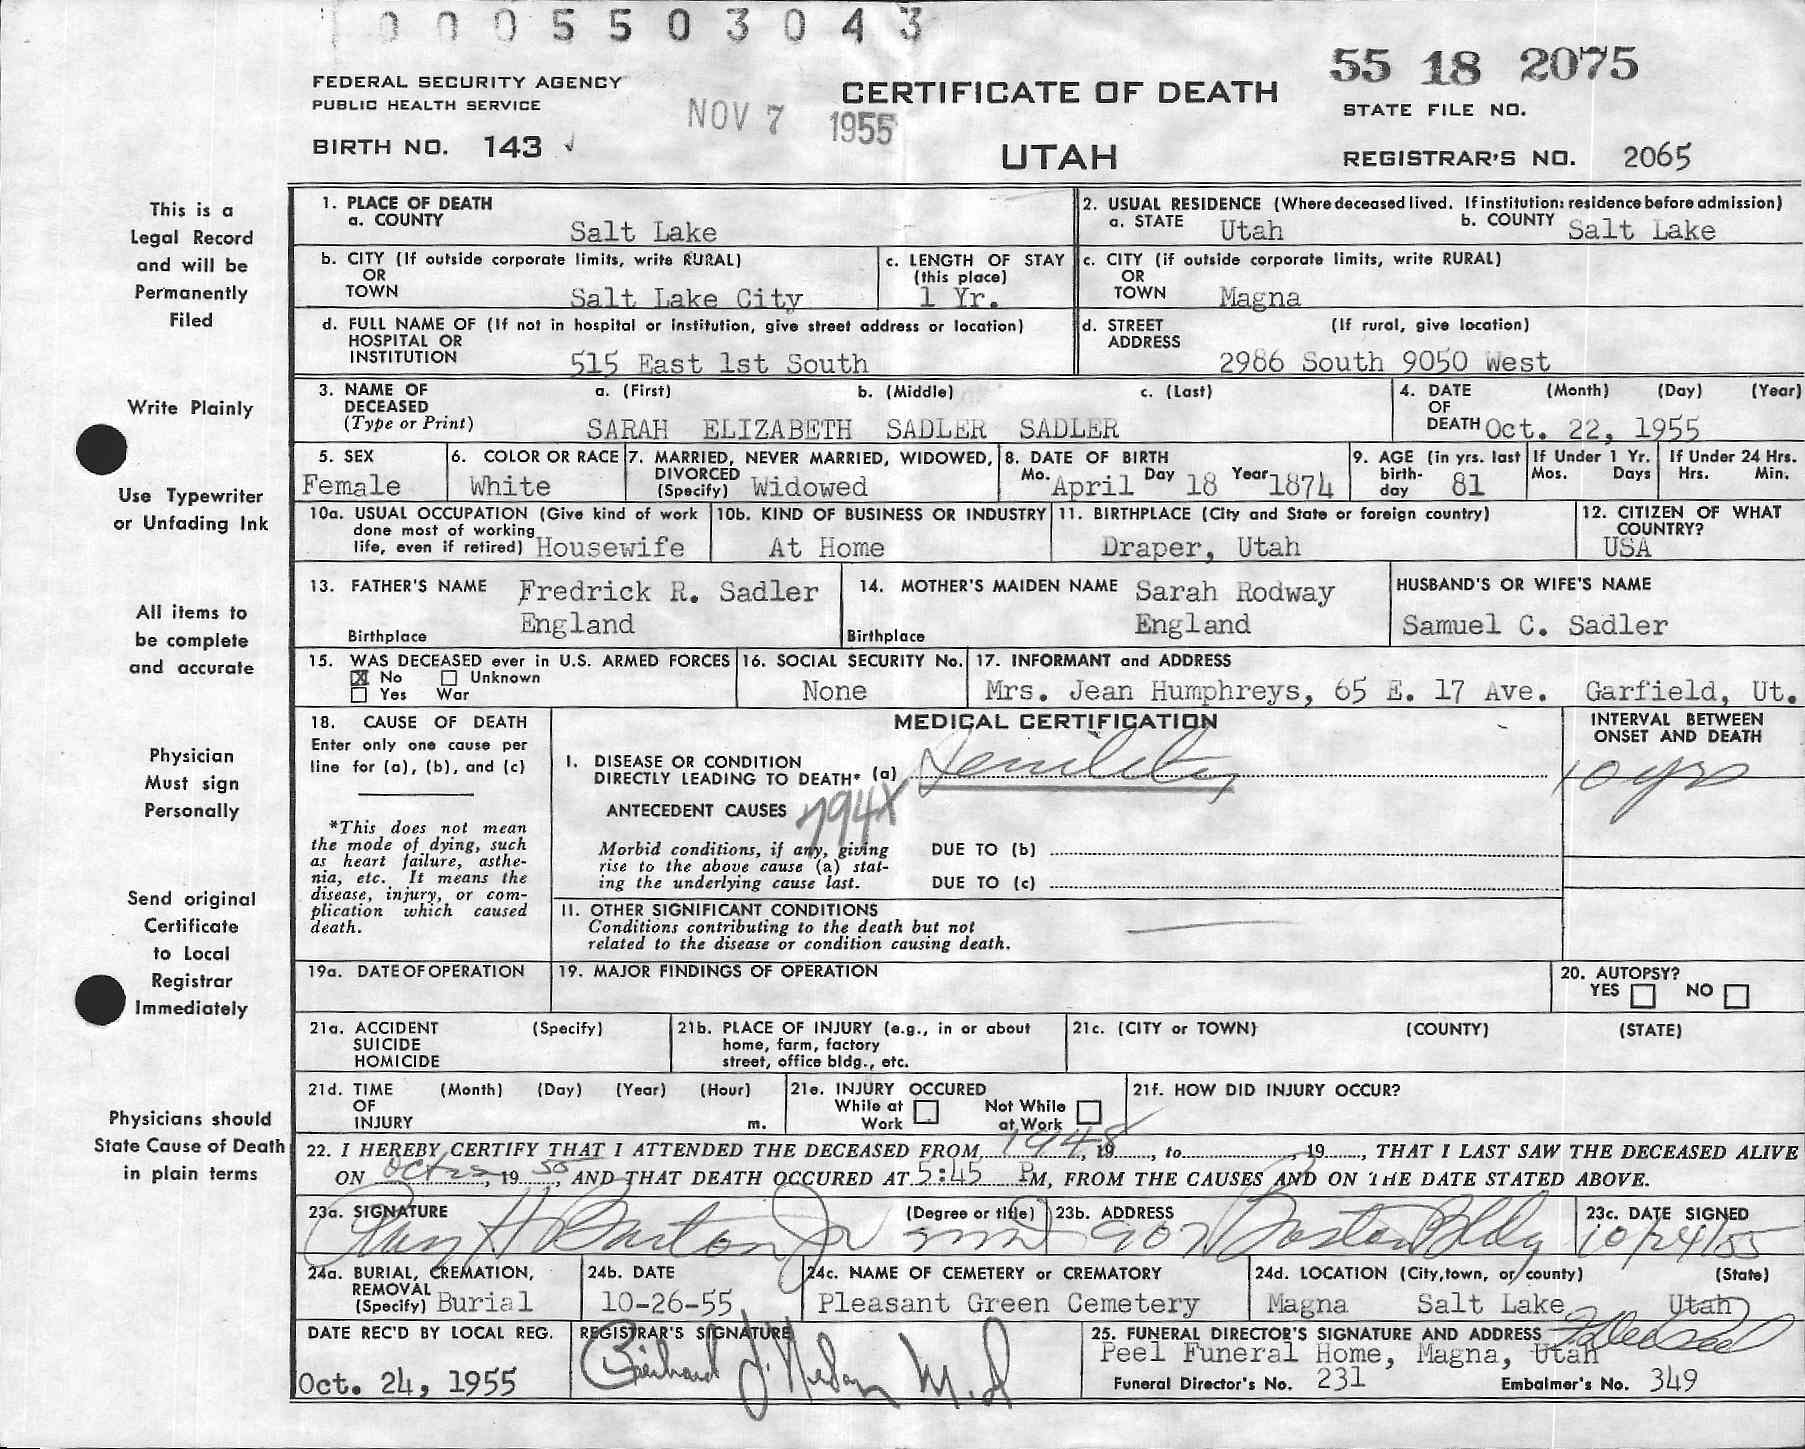 0005503043
FEDERAL SECURITY AGENCY
PUBLIC HEALTH SERVICE
BIRTH NO. 143
NOV 7 1955
CERTIFICATE OF DEATH
UTAH
55 18 2075
STATE FILE NO.
REGISTRAR'S NO. 2065
This is a
Legal Record
and will be
Permanently
Filed
Write Plainly
Use Typewriter
or Unfading Ink
All items to
be complete
and accurate
Physician
Must sign
Personally
Send original
Certificate
to Local
Registrar
Immediately
Physicians should
State Cause of Death
in plain terms
1. PLACE OF DEATH
a. COUNTY Salt Lake
2. USUAL RESIDENCE (Where deceased lived. If institution: residence before admission)
a. STATE Utah b. COUNTY Salt Lake
b. CITY (If outside corporate limits, write RURAL)
OR
TOWN Salt Lake City
c. LENGTH OF STAY
(this place)
1 Yr.
c. CITY (if outside corporate limits, write RURAL)
OR
TOWN Magna
d. FULL NAME OF (If not in hospital or institution, give street address or location)
HOSPITAL OR
INSTITUTION 515 East 1st South
d. STREET (If rural, give location)
ADDRESS
2986 South 9050 West
3. NAME OF a. (First) b. (Middle) c. (Last)
DECEASED
(Type or Print) SARAH ELIZABETH SADLER SADLER
4. DATE (Month) (Day) (Year)
OF
DEATH Oct. 22, 1955
5. SEX
Female
6. COLOR OR RACE
White
7. MARRIED, NEVER MARRIED, WIDOWED,
DIVORCED
(Specify) Widowed
8. DATE OF BIRTH
Mo. April Day 18 Year 1874
9. AGE (in yrs. last
birth-
day 81
If Under 1 Yr.
Mos. Days
If Under 24 Hrs.
Hrs. Min.
10a. USUAL OCCUPATION (Give kind of work
done most of working
life, even if retired) Housewife
10b. KIND OF BUSINESS OR INDUSTRY
At Home
11. BIRTHPLACE (City and State or foreign country)
Draper, Utah
12. CITIZEN OF WHAT
COUNTRY?
USA
13. FATHER'S NAME Fredrick R. Sadler
Birthplace England
14. MOTHER'S MAIDEN NAME Sarah Rodway
Birthplace England
HUSBAND'S OR WIFE'S NAME
Samuel C. Sadler
15. WAS DECEASED ever in U.S. ARMED FORCES
X No Unknown
Yes War
16. SOCIAL SECURITY No.
None
17. INFORMANT and ADDRESS
Mrs. Jean Humphreys, 65 E. 17 Ave. Garfield, Ut.
18. CAUSE OF DEATH
Enter only one cause per
line for (a), (b), and (c)
*This does not mean
the mode of dying, such
as heart failure, asthe-
nia, etc. It means the
disease, injury, or com-
plication which caused
death.
MEDICAL CERTIFICATION
INTERVAL BETWEEN
ONSET AND DEATH
I. DISEASE OR CONDITION
DIRECTLY LEADING TO DEATH* (a) Senility 10 yrs
ANTECEDENT CAUSES 794X
Morbid conditions, if any, giving
rise to the above cause (a) stat-
ing the underlying cause last.
DUE TO (b)
DUE TO (c)
II. OTHER SIGNIFICANT CONDITIONS
Conditions contributing to the death but not
related to the disease or condition causing death.
19a. DATE OF OPERATION
19. MAJOR FINDINGS OF OPERATION
20. AUTOPSY?
YES NO
21a. ACCIDENT (Specify)
SUICIDE
HOMICIDE
21b. PLACE OF INJURY (e.g., in or about
home, farm, factory
street, office bldg., etc.
21c. (CITY or TOWN) (COUNTY) (STATE)
21d. TIME (Month) (Day) (Year) (Hour)
OF
INJURY m.
21e. INJURY OCCURED
While at Work Not While at Work
21f. HOW DID INJURY OCCUR?
22. I HEREBY CERTIFY THAT I ATTENDED THE DECEASED FROM 1948, 19, to, 19, THAT I LAST SAW THE DECEASED ALIVE
ON Oct, 19 55, AND THAT DEATH OCCURED AT 5:45 PM, FROM THE CAUSES AND ON THE DATE STATED ABOVE.
23a. SIGNATURE (Degree or title)
H Barton Jr MD
23b. ADDRESS
907 Boston Bldg
23c. DATE SIGNED
10/24/55
24a. BURIAL, CREMATION,
REMOVAL
(Specify) Burial
24b. DATE
10-26-55
24c. NAME OF CEMETERY or CREMATORY
Pleasant Green Cemetery
24d. LOCATION (City, town, or county) (State)
Magna Salt Lake Utah
DATE REC'D BY LOCAL REG.
Oct. 24, 1955
REGISTRAR'S SIGNATURE
M.D
25. FUNERAL DIRECTOR'S SIGNATURE AND ADDRESS
Peel Funeral Home, Magna, Utah
Funeral Director's No. 231 Embalmer's No. 349